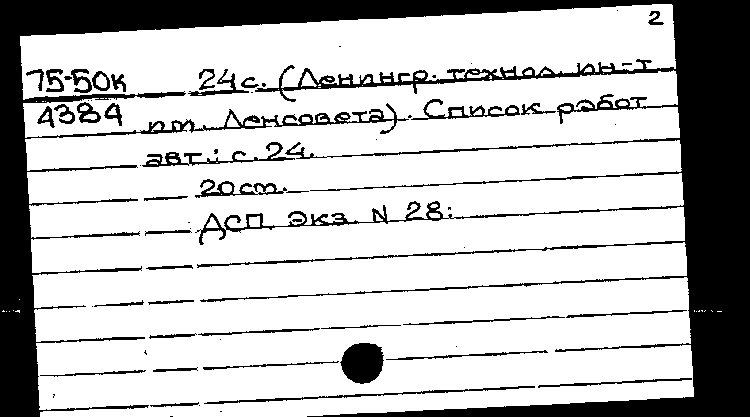 2
75-50к 24 с. (Ленингр. технол. ин-т
4384 им. Ленсовета). Список работ
авт.: с. 24.
20 см.
ДСП. Экз. N 28: